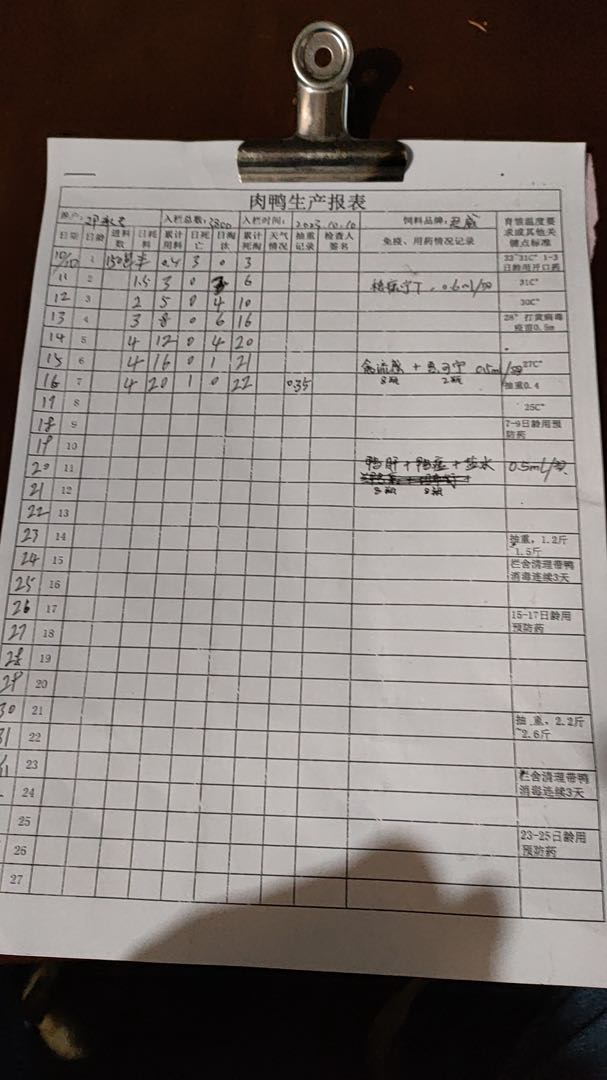 肉鸭生产报表
养户: 入栏总数: 入栏时间: 2023.10.10 饲料品牌:
日期 日龄 进料数 日耗料 累计用料 日死亡 日淘汰 累计死淘 天气情况 抽重记录 检查人签名 免疫、用药情况记录 育雏温度要求或其他关键点标准
10/10 1 150包 半 0.4 3 0 3 33~31C° 1-3日龄用开口药
11 2 1.5 3 0 3 6 0.6ml/羽 31C°
12 3 2 5 0 4 10 30C°
13 4 3 8 0 6 16 28° 打黄病毒疫苗0.5m
14 5 4 12 0 4 20
15 6 4 16 0 1 21 禽流感 + 0.5ml/羽 27C°
8瓶 2瓶
16 7 4 20 1 0 22 0.35 抽重0.4
17 8 25C°
18 9 7-9日龄用预防药
19 10
20 11 鸭肝 + 鸭瘟 + 盐水 0.5mL/羽
21 12 8瓶 8瓶
22 13
23 14 抽重，1.2斤~1.5斤
24 15 栏舍清理带鸭消毒连续3天
25 16
26 17 15-17日龄用预防药
27 18
28 19
29 20
30 21 抽重，2.2斤~2.6斤
31 22
23 栏舍清理带鸭消毒连续3天
24
25 23-25日龄用预防药
26
27